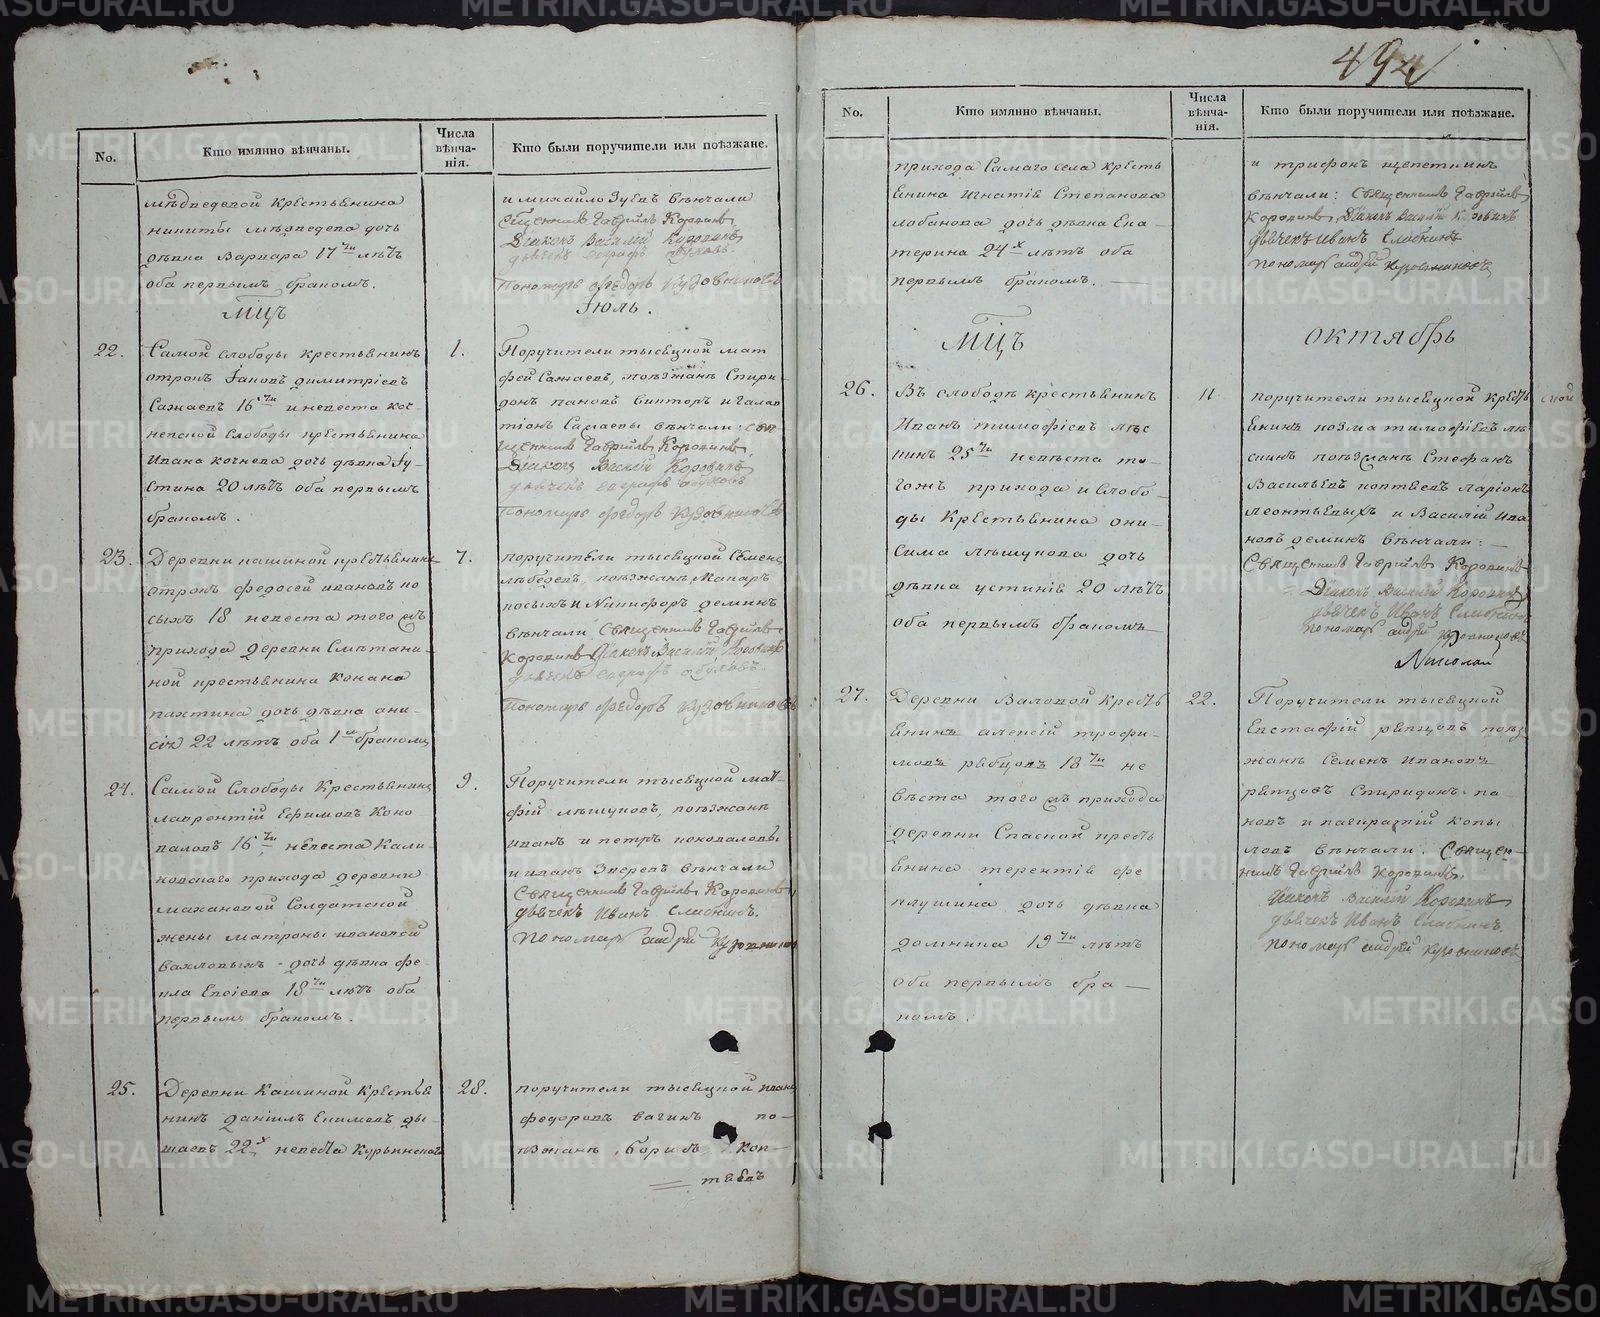 No.
Кто имянно вѣнчаны.
Числа вѣнча-
нія.
Кто были поручители или поѣзжане.
мѣдведевой крестьянина
никиты мѣдведева дочь
дѣвка Варвара 17ти лѣтъ
оба первымъ бракомъ.
и михайло Зуевъ вѣнчали
Священникъ Гавріилъ Коровинъ
Діаконъ Василій Коровинъ
дьячекъ
Пономарь Федоръ Кузовниковъ
Мцъ
Іюль.
22.
Самой слободы крестьянинъ
отрокъ Іаковъ димитріевъ
Сажаевъ 16ти и невеста коч-
невской слободы крестьянина
Ивана кочнева дочь дѣвка Іу-
стина 20 лѣтъ оба первымъ
бракомъ.
1.
Поручители тысецкой мат
фей Сажаевъ, поѣзжанъ Спири-
донъ пановъ Викторъ и Галак
тіонъ Сажаевы вѣнчали: свя
щенникъ Гавріилъ Коровинъ
Діаконъ Василій Коровинъ
дьячекъ
Пономарь Федоръ Кузовниковъ
23.
Деревни кашиной крестьянинъ
отрокъ федосей ивановъ ко
сыхъ 18 невеста того жъ
прихода деревни Смѣтани-
ной крестьянина Конана
пахтина дочь дѣвка ани-
сія 22 лѣтъ оба 1м бракомъ
7.
поручители тысецкой Семенъ
лѣбедевъ, поѣзжанъ Макаръ
косыхъ и Никифоръ деминъ
вѣнчали Священникъ Гавріилъ
Коровинъ Діаконъ Василій Коровинъ
дьячекъ
Пономарь Федоръ Кузовниковъ
24.
Самой Слободы Крестьянинъ
лаврентій Ефимовъ Коно
валовъ 16ти невеста Кали-
новскаго прихода деревни
махановой Солдатской
жены матроны ивановой
вахловыхъ - дочь дѣвка фе-
кла Евсіева 18ти лѣтъ оба
первымъ бракомъ.
9.
Поручители тысецкой мат-
фій лѣшуковъ, поѣзжанъ
иванъ и петръ коноваловы
и иванъ Зверевъ вѣнчали
Священникъ Гавріилъ Коровинъ
дьячекъ Иванъ Слабнинъ.
пономарь андрей кузовников
25.
Деревни Кашиной Крестья
нинъ даніилъ Екимовъ ды-
шаевъ 22х невеста Курьинскаго
28.
поручители тысецкой иванъ
федоровъ вагинъ по-
ѣзжанъ Борисъ коп-
тевъ
494
No.
Кто имянно вѣнчаны.
Числа вѣнча-
нія.
Кто были поручители или поѣзжане.
прихода Самаго села кресть
янина Игнатія Степанова
лобанова дочь дѣвка Ека-
терина 24х лѣтъ оба
первымъ бракомъ.
и трифонъ щепеткинъ
вѣнчали: Священникъ Гавріилъ
Коровинъ Діаконъ Василій Коровинъ
дьячекъ Иванъ Слабнинъ
пономарь андрей кузовниковъ
Мцъ
октябрь
26.
Въ слободѣ крестьянинъ
Иванъ тимофѣевъ лѣс
кинъ 25ти невѣста то-
гожъ прихода и Слобо-
ды Крестьянина они-
сима лѣшукова дочь
дѣвка устинія 20 лѣтъ
оба первымъ бракомъ
11
поручители тысецкой крест
янинъ козма тимофѣевъ лѣ
скинъ поѣзжанъ Стефанъ
Васильевъ коптевъ ларіонъ
леонтьевыхъ и Василій Ива
новъ деминъ вѣнчали: —
Священникъ Гавріилъ Коровинъ
Діаконъ Василій Коровинъ
дьячекъ Иванъ Слабнинъ
пономарь андрей кузовниковъ
Николай
27.
Деревни Валовой крестья
нинъ алексій трофи-
мовъ рѣбцовъ 18ти не
вѣста того жъ прихода
деревни Спасной кресть
янина терентія фе
клушина дочь дѣвка
домника 19ти лѣтъ
оба первымъ бра-
комъ.
22.
Поручители тысецкой
Евстафій рѣпцовъ поѣз
жанъ Семенъ Ивановъ
рѣпцовъ Спиридонъ па-
новъ и панкратій копы
ловъ вѣнчали. Священ-
никъ Гавріилъ Коровинъ,
Діаконъ Василій Коровинъ
дьячекъ Иванъ Слабнинъ.
пономарь андрей кузовниковъ
METRIKI.GASO-URAL.RU